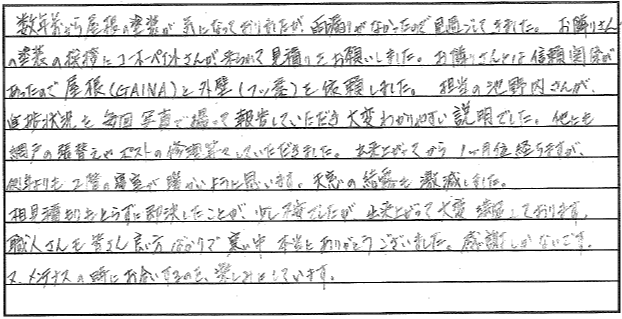 数年前から屋根の塗装が気になっておりましたが、雨漏りがなかったので見過ごしてきました。お隣りさん
の塗装の挨拶にユーホーペイントさんが来られて見積りをお願いしました。お隣りさんとは信頼関係が
あったので屋根(GAINA)と外壁(フッ素)を依頼しました。担当の池野内さんが、
進捗状況を毎回写真で撮って報告していただき大変わかりやすい説明でした。他にも
網戸の張替えやポストの修理等々していただきました。出来上がってから1ヶ月位経ちますが、
例年よりも2階の寝室が暖かいように思います。天窓の結露も激減しました。
相見積もりをとらずに即決したことが、少し不安でしたが、出来上がって大変満足しております。
職人さんも皆さん良い方ばかりで寒い中本当にありがとうございました。感謝しかないです。
又、メンテナスの時にお会いするのを、楽しみにしています。